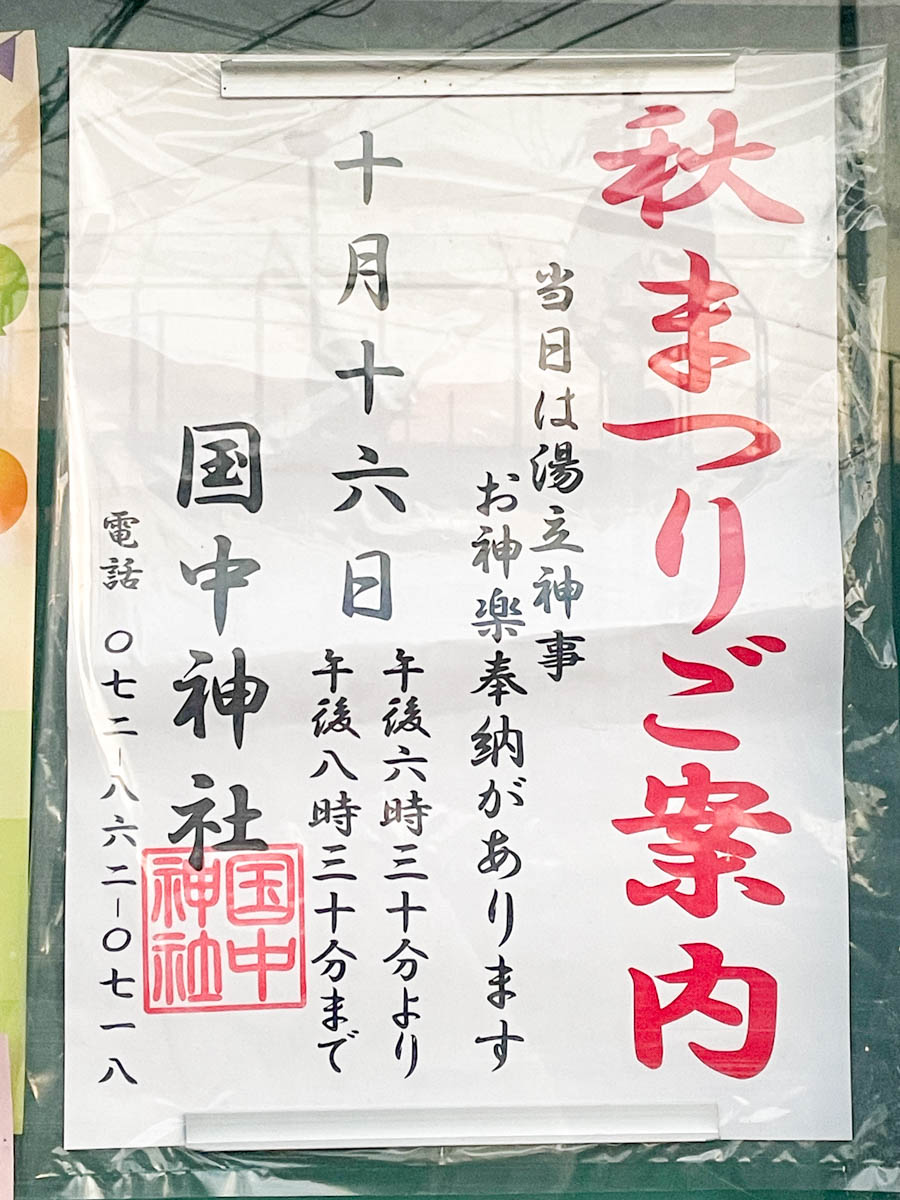 秋まつりご案内
当日は湯立神事
お神楽奉納があります
十月十六日
午後六時三十分より
午後八時三十分まで
国中神社
国中
神社
電話 〇七二-八六二-〇七一八